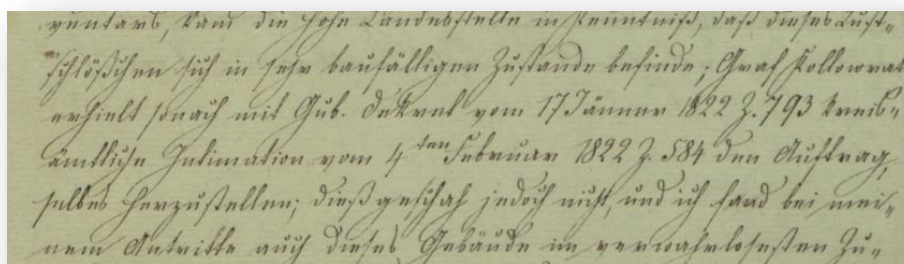 ventars, kam die hohe Landesstelle in Kenntniß, daß dieses Lust-
schlößchen sich in sehr baufälligen Zustande befinde; Graf Kollowrat
erhielt sonach mit Gub. Dekret vom 17 Jänner 1822 Z. 793 kreis-
ämtliche Intimation vom 4ten Februar 1822 Z. 584 den Auftrag,
selbes herzustellen; dieß geschah jedoch nicht, und ich fand bei mei-
nem Antritte auch dieses Gebäude im verwahrlosesten Zu-